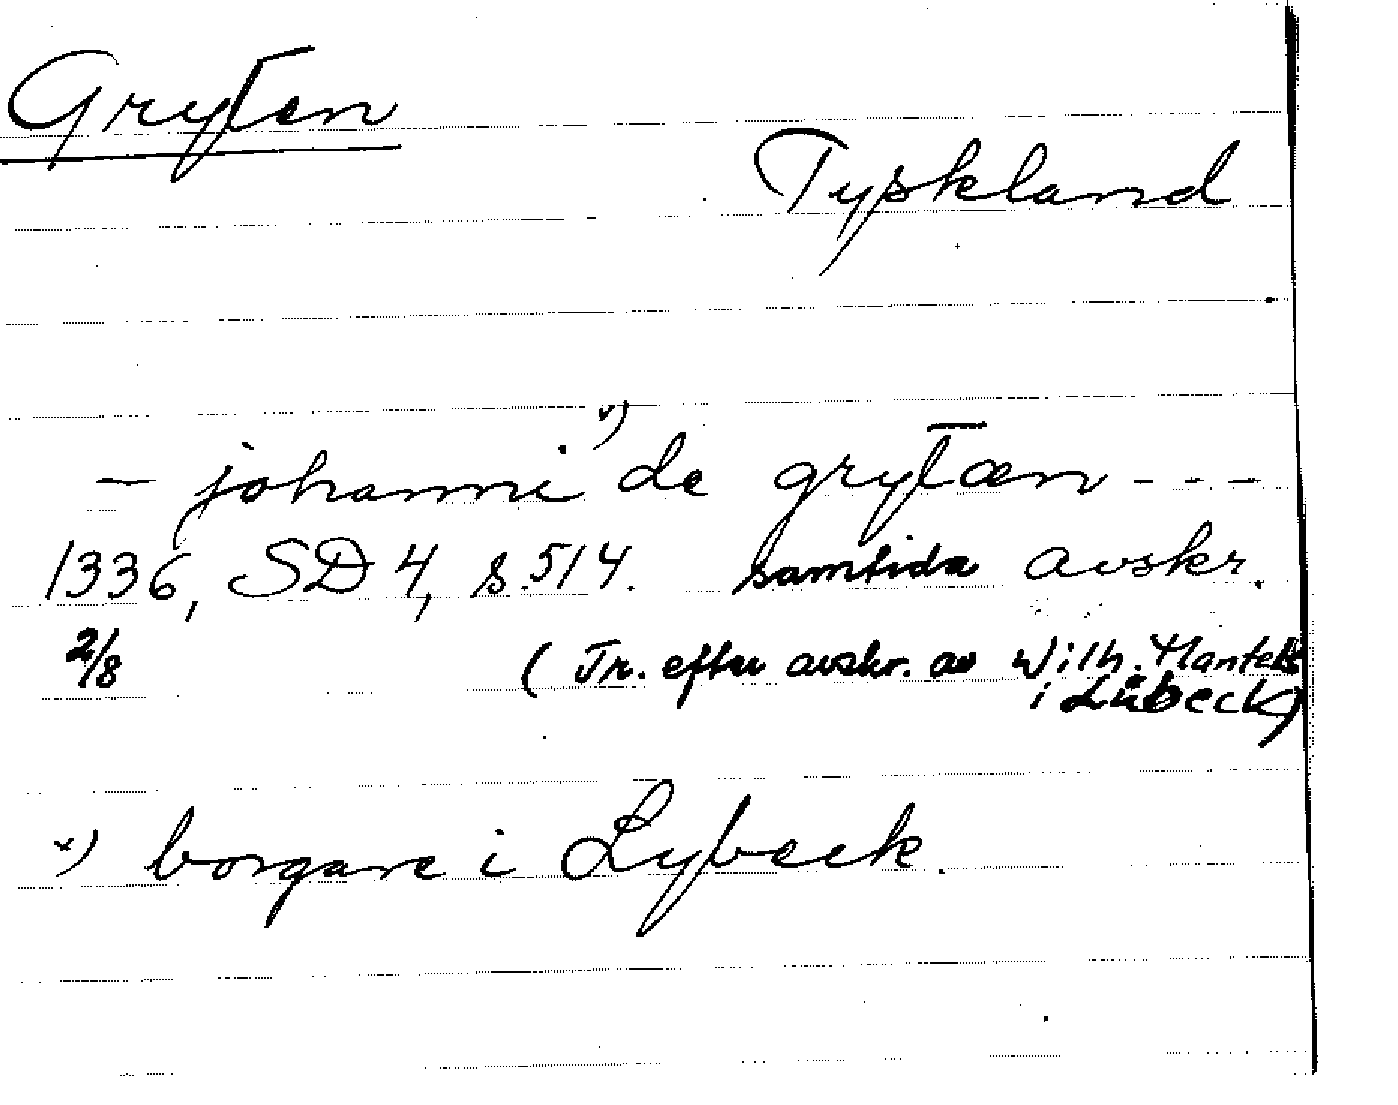 Gryten
Tyskland
— johanni ˣ⁾ de grytæn - - -
1336, SD 4, s. 514. samtida avskr.
2/8 (Tr. efter avskr. av Wilh. Mantels
i Lübeck)
x) borgare i Lybeck.